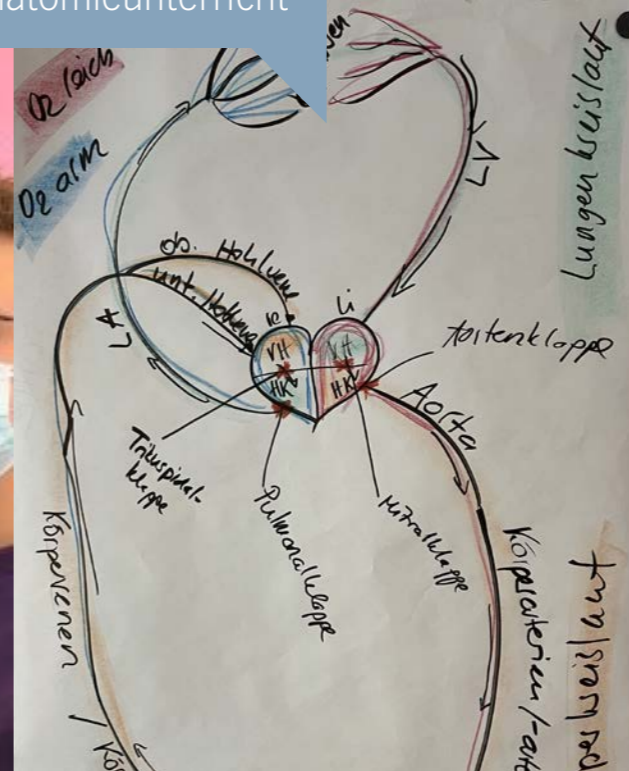 natomieunterricht
O2 reich
O2 arm
Lungenkreislauf
LV
ob. Hohlvene
unt. Hohlvene
LA
re
Li
VH
VH
HK
HK
Aortenklappe
Aorta
Trikuspidal-
klappe
Pulmonalklappe
Mitralklappe
Körpervenen
Körperarterien/-